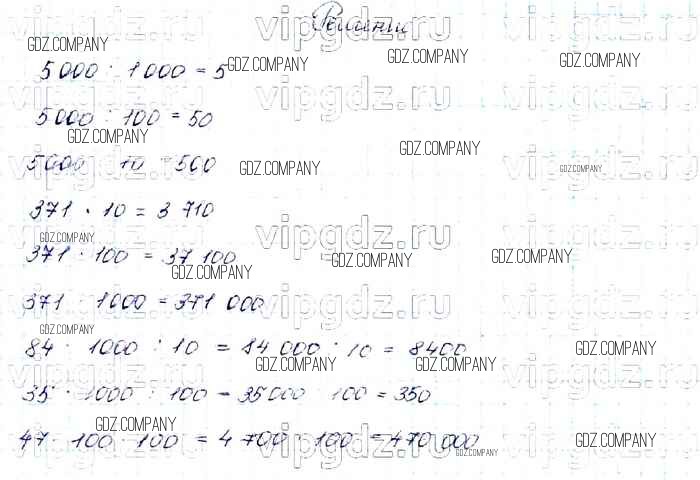 Решение
5 000 : 1 000 = 5
5 000 : 100 = 50
5 000 : 10 = 500
371 · 10 = 3 710
371 · 100 = 37 100
371 · 1000 = 371 000
84 · 1000 : 10 = 84 000 : 10 = 8400
35 · 1000 : 100 = 35000 : 100 = 350
47 · 100 · 100 = 4 700 · 100 = 470 000
vipgdz.ru
GDZ.COMPANY